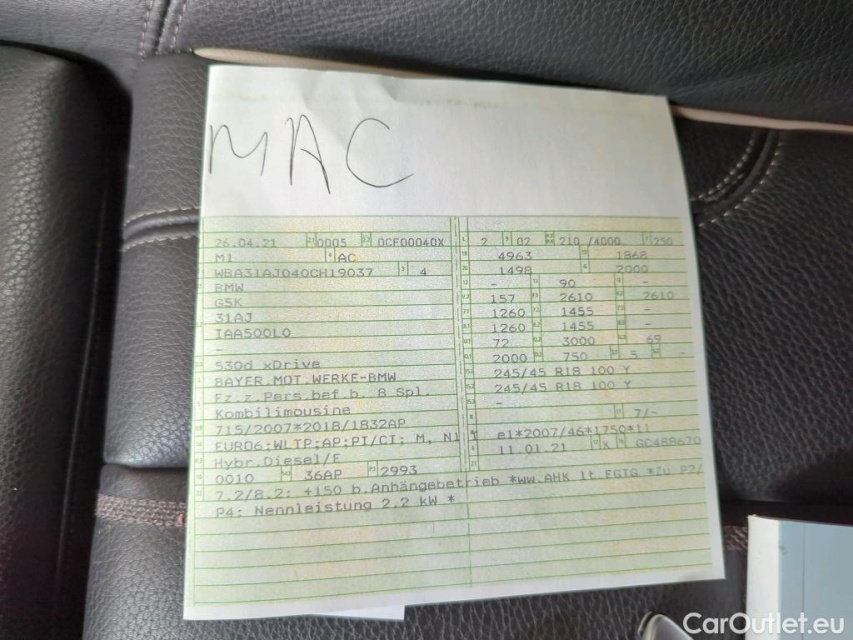 MAC
26.04.21 0005 0CF00040X 2 02 210 /4000 250
M1 AC 4963 1868
WBA31AJ040CH19037 4 1498 2000
BMW - 90 -
G5K 157 2610 2610
31AJ 1260 1455 -
IAA500L0 1260 1455 -
- 72 3000 69
530d xDrive 2000 750 5 -
BAYER.MOT.WERKE-BMW 245/45 R18 100 Y
Fz.z.Pers.bef.b. 8 Spl. 245/45 R18 100 Y
Kombilimousine -
715/2007*2018/1832AP 7/-
EURO6;WLTP;AP;PI/CI; M, N1 e1*2007/46*1750*11
Hybr.Diesel/E 11.01.21 K GC488670
0010 36AP 2993
7.2/8.2: +150 b.Anhängebetrieb *ww.AHK lt.EGTG *zu P2/
P4: Nennleistung 2,2 kW *
CarOutlet.eu